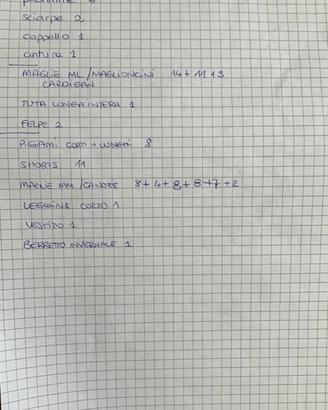 sciarpe 2
cappello 1
cintura 1
MAGLIE ML / MAGLIONCINI 14 + 11 + 3
CARDIGAN
TUTA LUNGA INTERA 1
FELPE 2
PIGIAMI CORTI + LUNGHI 8
SHORTS 11
MAGLIE MM / CANOTTE 8 + 4 + 8 + 8 + 7 + 2
LEGGINS CORTO 1
VESTITO 1
BERRETTO INVERNALE 1